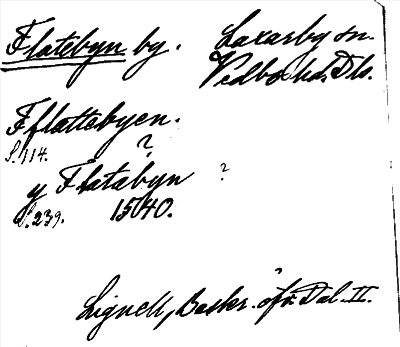 Flatebyn by. Laxarby sn.
Vedbo hd. Dls.
Fflattebyen.
S. 114. ?
y Flatabyn ?
S. 239. 1540.
Lignell, Beskr. öfv. Dal. II.